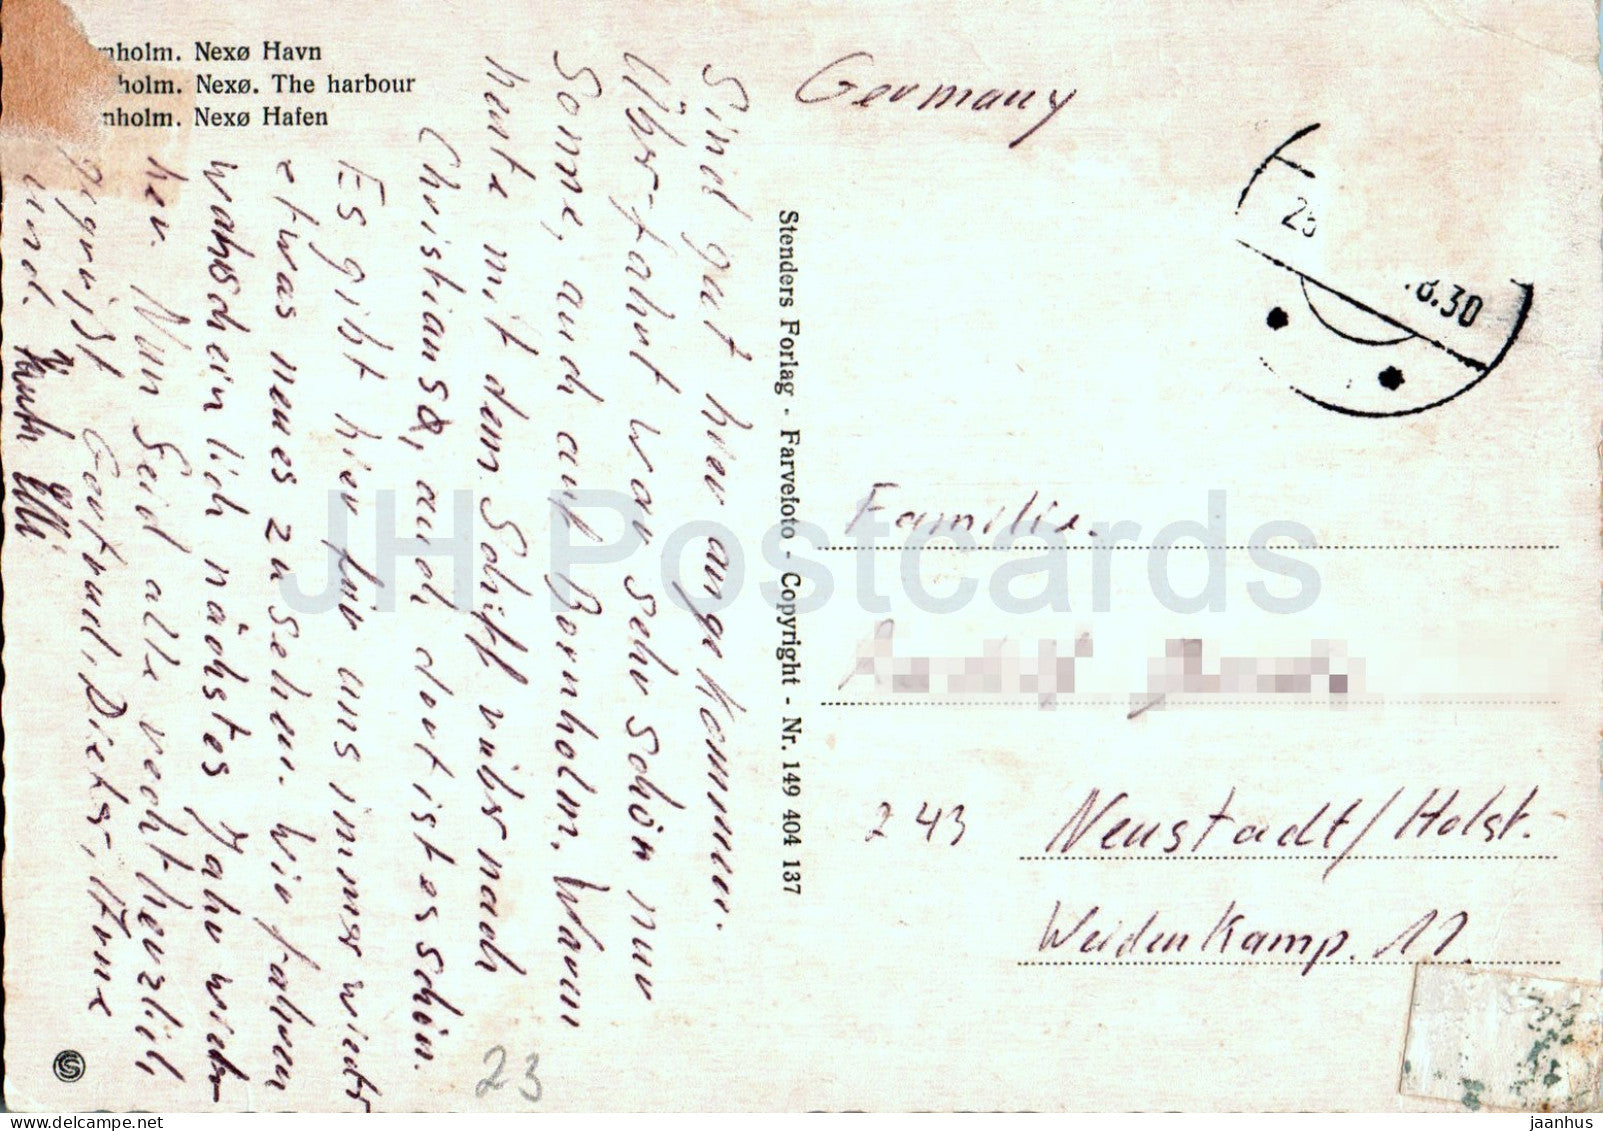 holm. Nexø Havn
holm. Nexø. The harbour
nholm. Nexø Hafen
Sind gut hier angekommen.
Überfahrt war sehr schön nur
Sonne, auch auf Bornholm. Waren
heute mit dem Schiff rüber nach
Christiansø, auch dort ist es schön.
Es gibt hier für uns immer wieder
etwas neues zu sehen. Wir fahren
wahscheinlich nächstes Jahr wieder
her. Nun Seid alle recht herzlich
gegrüßt Gertrud, Dieter, Anne
und. Ruth Elli
Stenders Forlag - Farvefoto - Copyright - Nr. 149 404 137
Germany
25
.8.30
Familie.
243 Neustadt/Holst.
Weidenkamp. 11.
23
JH Postcards
jaanhus